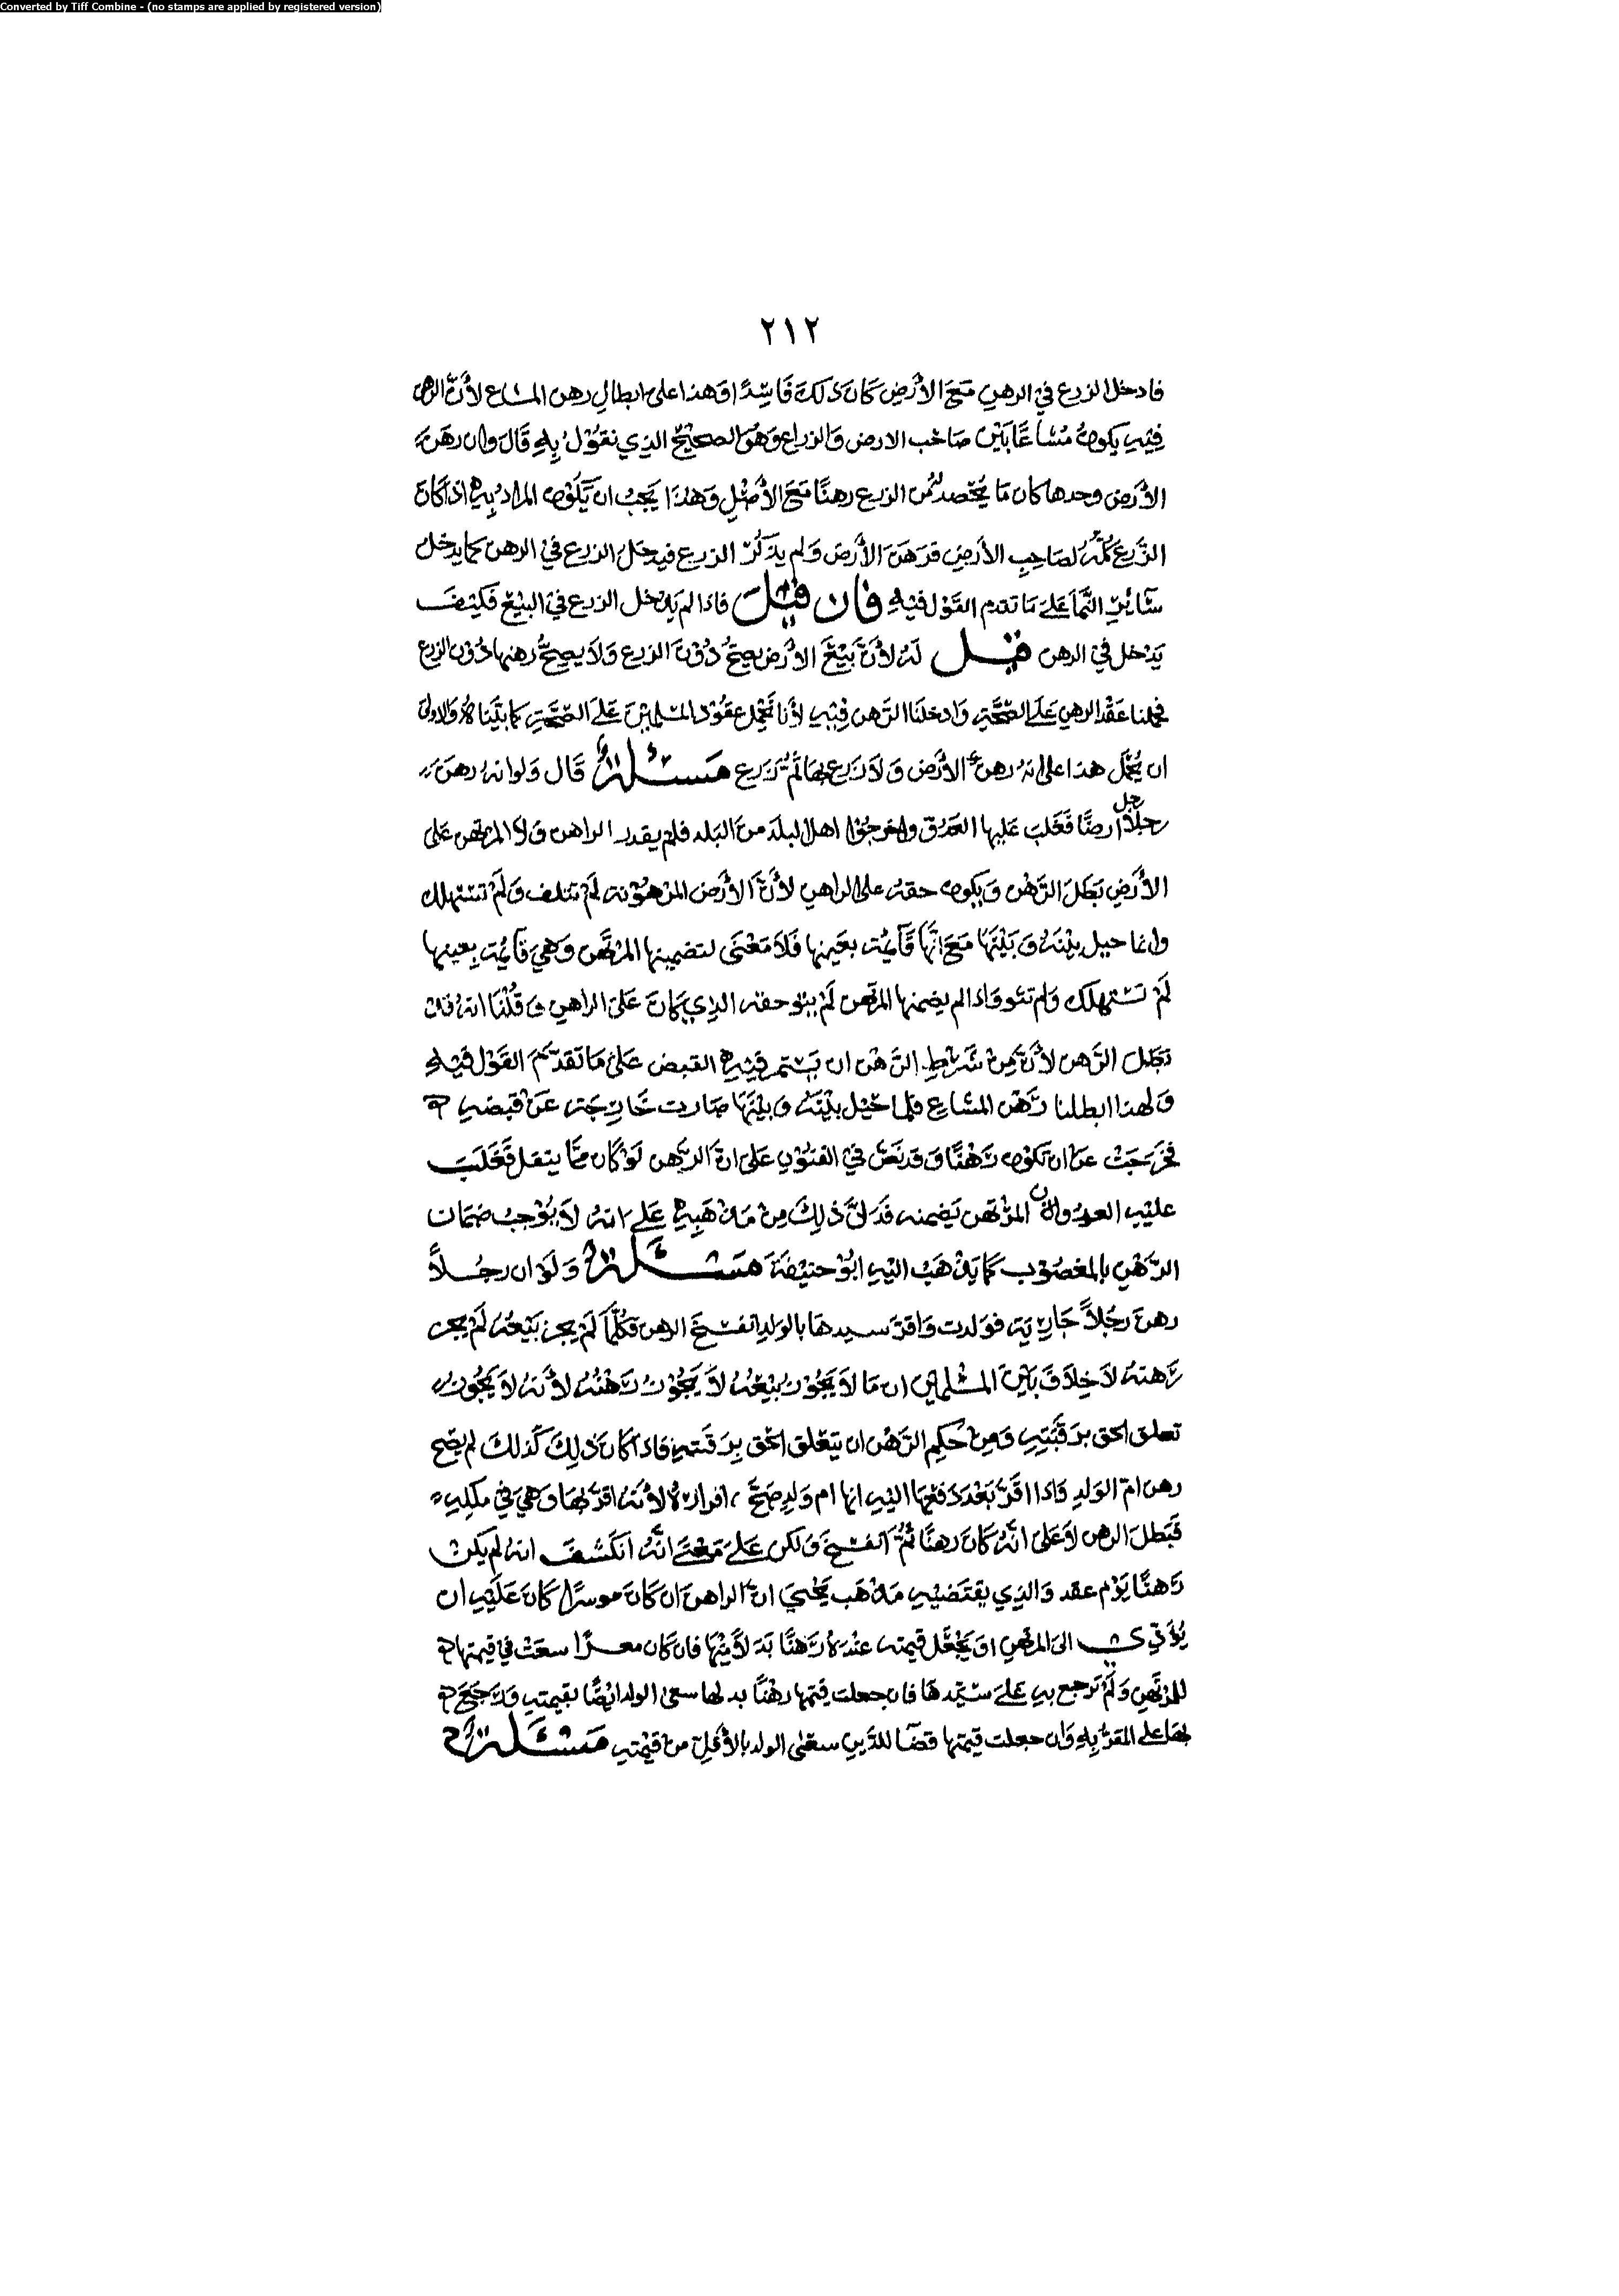 Converted by Tiff Combine - (no stamps are applied by registered version)
٢١٢
فادخل الزرع في الرهن مَعَ الأرْضِ كَانَ ذلكَ فَاسِدًا وَهذا على ابطال رهن المشاع لأنَّ الرهن
فِيْهِ يكون مُشَاعًا بَيْنَ صَاحب الارض وَالزراع وَهُوَ الصحيْحُ الذِي نقُوْلُ بِهِ قَالَ وان رهَنَ
الأرْض وحدها كان مَا يُحْصد مُن الزرع رهنًا مَعَ الأصْلِ وَهٰذَا يَجبُ ان يَكُوْن المرادُ بِهِ اذا كانَ
الزَّرع كُلّهُ لصَاحِبِ الأرضِ فرَهَنَ الأرْضَ وَلم يذكُرْ الزرع فيدخل الزرع فِيْ الرهن كما يدخل
سَائرُ النَّمَا عَلىَ مَا تقدم القَوْل فِيْهِ فان قيْل فاذا لم يَدخل الزرع فيْ البَيْعْ فكَيْفَ
يَدْخل فيْ الرهن قيل لَهُ لأنَّ بَيْعَ الأرْض يصحُّ دُوْنَ الزرع وَلاَ يصحُّ رهنها دُوْن الزرع
فحملنا عَقْد الرهن عَلىَ الصحَّةِ وَادخلنَا الرَّهن فِيْهِ لأنا نَحْمل عقُوْد المسلميْنَ عَلىَ الصّحَّةِ كما بيَّنَاهُ وَالاولى
ان يُحْمَل هذا على انهُ رهن الأرْض وَلاَ زرع بها ثُمَّ زرع مَسئلةٌ قَال وَلو انهُ رهنَ
رجلٌ رجلاً ارضًا فَغَلبَ عَليها العَدُوّ واخرجُوْا اهل البلد منَ البَلد فلم يقدر الراهن وَلا المرتهن عَلى
الأرْضِ بَطَلَ الرَّهْن وَيكون حقهُ على الراهن لأنَّ الأرْض المرْهُوْنة لَمْ تتلف وَلَمْ تسْتهلك
وانما حيل بيْنَهُ وَبَيْنَهَا مَعَ انَّهَا قَائِمة بعَينها فَلاَ مَعْنَى لتضمينها المرْتَهَن وَهيَ قائمة بِعينها
لَمْ تسْتهلك وَلم تتو وَاذا لم يضمنها المرتهن لَمْ يتو حقه الذِي كانَ عَلىَ الراهن وَقُلْنَا انهُ
بَطَلَ الرَّهن لأنَّ مِنْ شَرْطِ الرَّهْن ان يَسْتمر فِيْهِ القبض عَلىَ مَا تقدَّمَ القَوْل فِيْهِ
وَلهذا ابطلنا رَهْن المشاع فلما حيْل بيْنَهُ وَبيْنَهَا صَارت خَارِجَة عَنْ قبضهِ
فخرَجَتْ عن ان تكُوْن رَهْنًا وَقد نصَّ فيْ الفنُوْنِ عَلىَ انَّ الرهن لَوْ كان مما ينقل فَغَلَبَ
عليْهِ العدُو فان المرْتهن يَضمنه فَدَلَّ ذلِكَ مِنْ مَذْهَبِهِ عَلىَ انهُ لاَ يُوْجبُ ضمَان
الرَّهْن بالمغصُوْب كما يذْهَبُ اليْهِ ابُوْ حنيْفَةَ مَسْئلةٌ وَلَوْ ان رجُلاً
رهنَ رجُلاً جَارِيَة فولدت وَاقرَّ سيدهَا بالوَلدِ انفسَخَ الرهن فكُلَّمَا لَمْ يجز بَيْعهُ لَمْ يجز
رَهنهُ لاَ خِلاَفَ بَيْنَ المسْلمين ان مَا لاَ يَجُوْزُ بَيْعهُ لاَ يَجُوْزُ رَهْنُهُ لأنهُ لاَ يَجُوْزُ
تعلق الحق برَقَبَتِهِ وَمِنْ حُكمِ الرَّهْن ان يتعَّلق الحق بِرَقبتهِ فاذا كانَ ذلِكَ كذلكَ لم يصِّح
رهن امّ الولدِ وَاذا اقرَّ بَعْدَ دَفعهَا اليْهِ انها ام ولدٍ صَحَّ اقرارهُ لأنهُ اقرَّ بهَا وَهيَ فيْ ملكِهِ
فَبَطلَ الرهن لاَ عَلىَ انّهُ كانَ رهنًا ثُمَّ انفسَخَ وَلكن عَلىَ مَعْنى انَّهُ انكشَفَ انهُ لم يكن
رَهنًا يَوْم عقد وَالذِي يقتضيْهِ مَذْهَب يَحْيىَ انَّ الراهن ان كانَ موسرًا كانَ عَلَيْهِ ان
يُؤَدّي الىَ المرتهن اوْ يَجْعَل قيمته عنْدَهُ رَهنًا بَدَلاً مِنْهَا فان كان معسرًا سعَتْ في قيمتها
للمرتَهن وَلَمْ ترجع بهِ عَلىَ سيّدهَا فان جعلت قيمتها رهْنًا بدلها سعى الولد ايْضًا بقيمتهِ وَرَجَعَ
بهَا على المقرّ بِهِ وَان جعلت قيمتها قضَا للدَّينِ سعَى الولد بالأقلّ من قيْمتِه مَسْئلةٌ